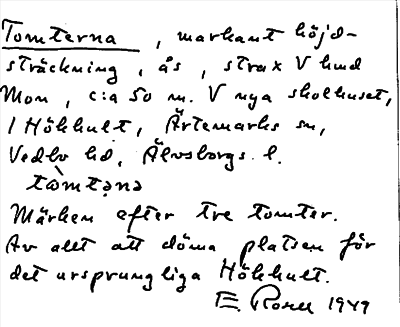 Tomterna, markant höjd-
sträckning, ås, strax V hmd
Mon, c:a 50 m. V nya skolhuset,
1 Hökhult, Ärtemarks sn,
Vedbo hd, Älvsborgs l.
tòmtəna
Märken efter tre tomter.
Av allt att döma platsen för
det ursprungliga Hökhult.
E. 1949